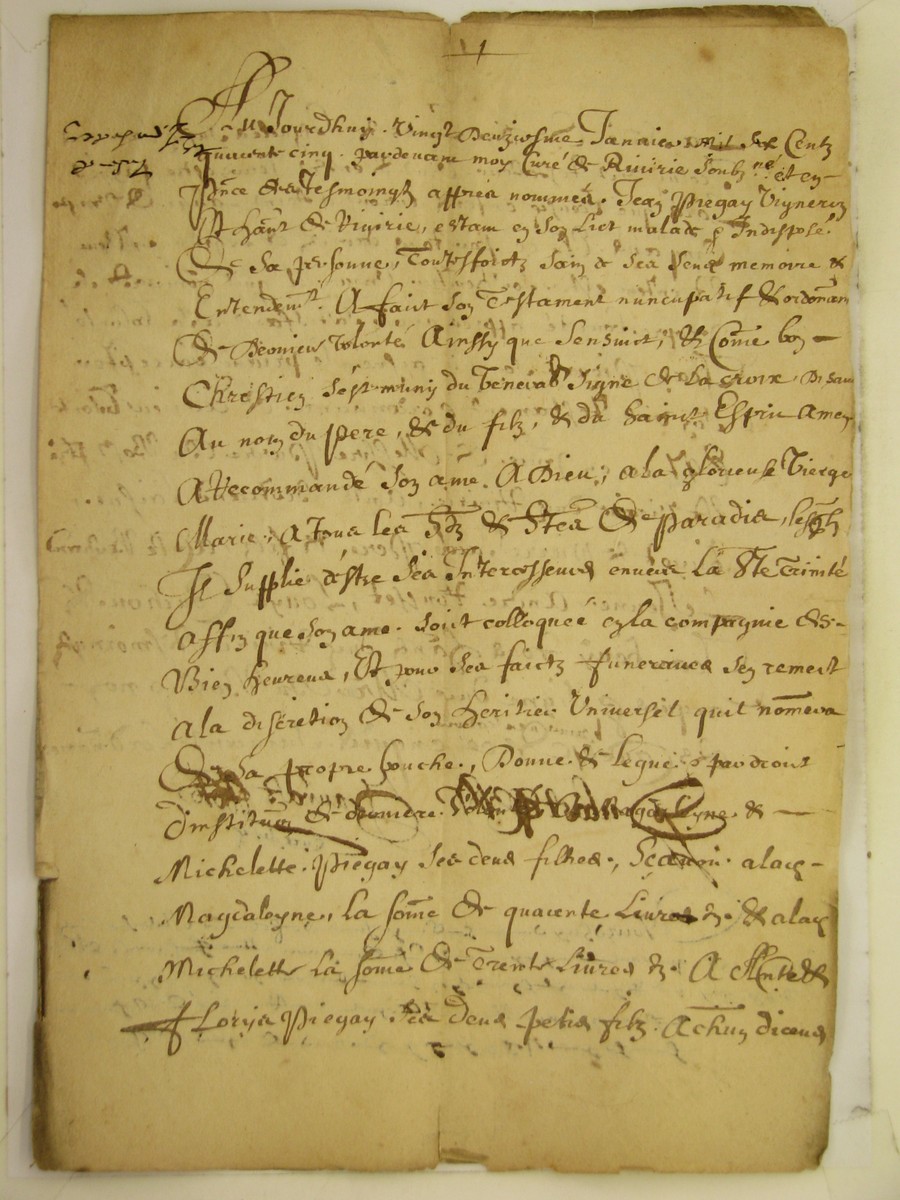 1
Au Jourdhuy. Vingt Deuziesme Janvier mil six Centz
quarente cinq. pardevant moy Curé de Rivirie soubz né et en
pnce des tesmoingtz apprés nommés. Jean Piegay Vigneron
Et hant de Rivirie, estant en son lict malade & Indisposé
De sa personne, Toutesfoictz sain de ses sens memoire &
Entendemt. A faict son Testament nuncupatif & ordonan
de Derniere volonté Ainssy que sensuict, & Come bon
Chrestien sest muny du venerab signe de la croix, Disant
Au nom du pere, & du filz, & du Sainct Esprit Amen
A Recommandé son ame A Dieu, a la glorieuse Vierge
Marie, a tous les Stz & Stes de paradis, lesqlz
Il Supplie d'estre ses Intercesseurs envers la Ste Trinité
affin que son ame soict colloqueé en la compagnie des
Bien heureux, Et pour ses faictz funeraires sen remest
a la discretion de son heritier Universel quil nomera
De sa propre bouche, Donne & legue par droict
dinstituon Magdaleyne &
Michelette Piegay ses deux filhes, Scavoir a lad
Magdaleyne, la some de quarente Livres tz. & a lad
Michelette la some de Trente Livres tz. A
Florys Piegay ses deux petis filz A chun diceux